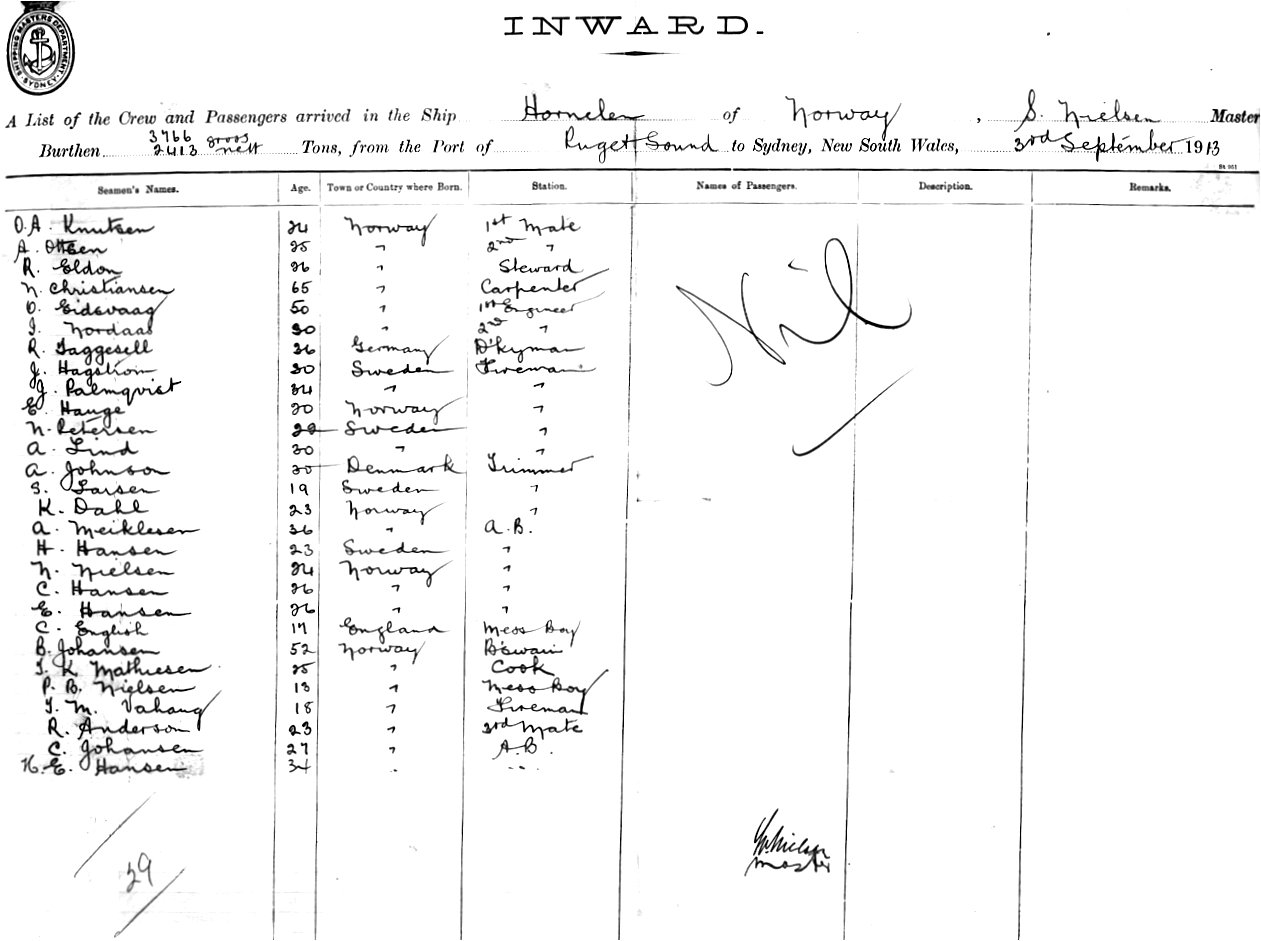 SHIPPING MASTERS DEPARTMENT. SYDNEY
INWARD.
A List of the Crew and Passengers arrived in the Ship Hornelen of Norway, S. Nielsen Master
Burthen 3766 gross 2413 nett Tons, from the Port of Puget Sound to Sydney, New South Wales, 3rd September 1913
Seamen's Names. Age. Town or Country where Born. Station. Names of Passengers. Description. Remarks.
O.A. Knutsen 24 Norway 1st Mate
A. Ottsen 25 " 2nd "
R. Eldon 26 " Steward
N. Christiansen 65 " Carpenter
O. Eidsvaag 50 " 1st Engineer
I. Nordaas 30 " 2nd "
R. Taggesell 26 Germany D'kyman
J. Hagstrom 30 Sweden Fireman
J. Palmqvist 24 " "
E. Hauge 20 Norway "
N. Petersen Sweden "
A. Lind 30 " "
A. Johnson 30 Denmark Trimmer
S. Larsen 19 Sweden "
K. Dahl 23 Norway "
A. Meiklesen 36 " A.B.
H. Hansen 23 Sweden "
N. Nielsen 24 Norway "
C. Hansen 26 " "
E. Hansen 26 " "
C. English 17 England Mess Boy
B. Johansen 52 Norway B'swain
T. K. Mathiesen 25 " Cook
P. B. Nielsen 18 " Mess Boy
T. M. Vahaug 18 " Fireman
R. Anderson 23 " 3rd Mate
C. Johansen 27 " A.B.
H. E. Hansen 34 " "
Nil
Nielsen
Master
29